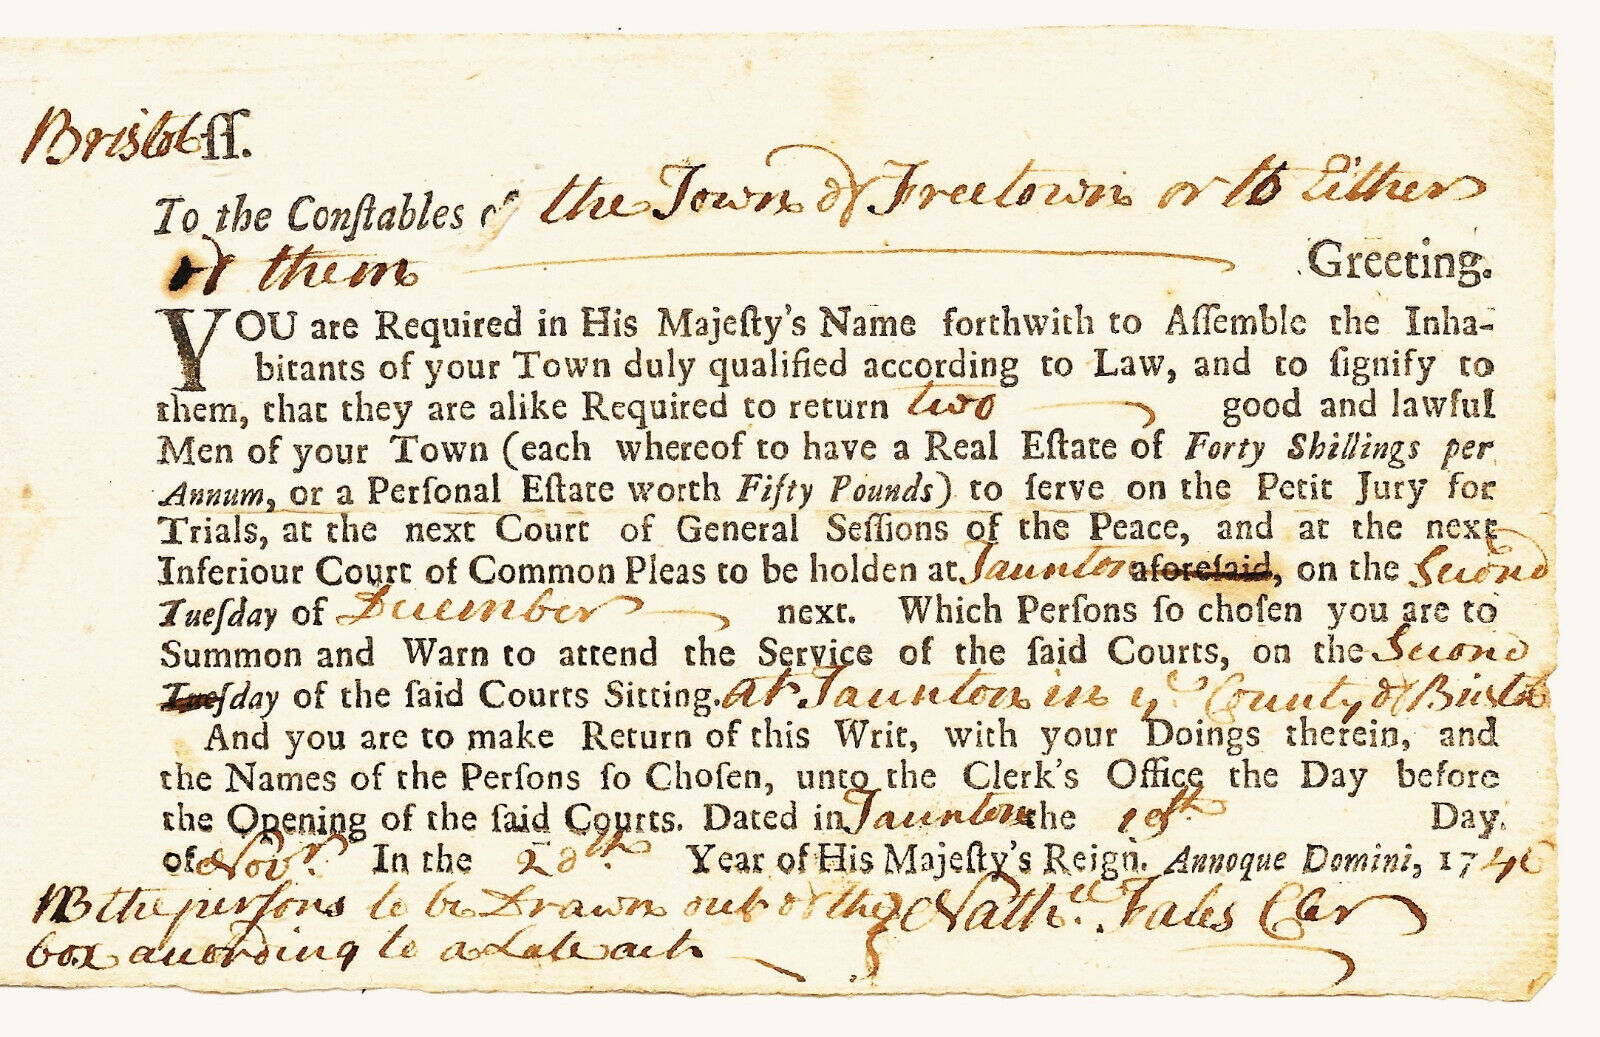 Bristol ſſ.
To the Conſtables of the Town of Freetown or to Either
of them Greeting.
YOU are Required in His Majeſty's Name forthwith to Aſſemble the Inha-
bitants of your Town duly qualified according to Law, and to ſignify to
them, that they are alike Required to return two good and lawful
Men of your Town (each whereof to have a Real Eſtate of Forty Shillings per
Annum, or a Perſonal Eſtate worth Fifty Pounds) to ſerve on the Petit Jury for
Trials, at the next Court of General Seſſions of the Peace, and at the next
Inferiour Court of Common Pleas to be holden at Taunton aforeſaid, on the Second
Tueſday of December next. Which Perſons ſo choſen you are to
Summon and Warn to attend the Service of the ſaid Courts, on the Second
Tueſday of the ſaid Courts Sitting. at Taunton in yᵉ County of Bristol
And you are to make Return of this Writ, with your Doings therein, and
the Names of the Perſons ſo Choſen, unto the Clerk's Office the Day before
the Opening of the ſaid Courts. Dated in Taunton the Day
of Novʳ. In the 20th. Year of His Majeſty's Reign. Annoque Domini, 1746
NB the perſons to be Drawn out of the Nathˡˡ. Fales Cler
box according to a Late act